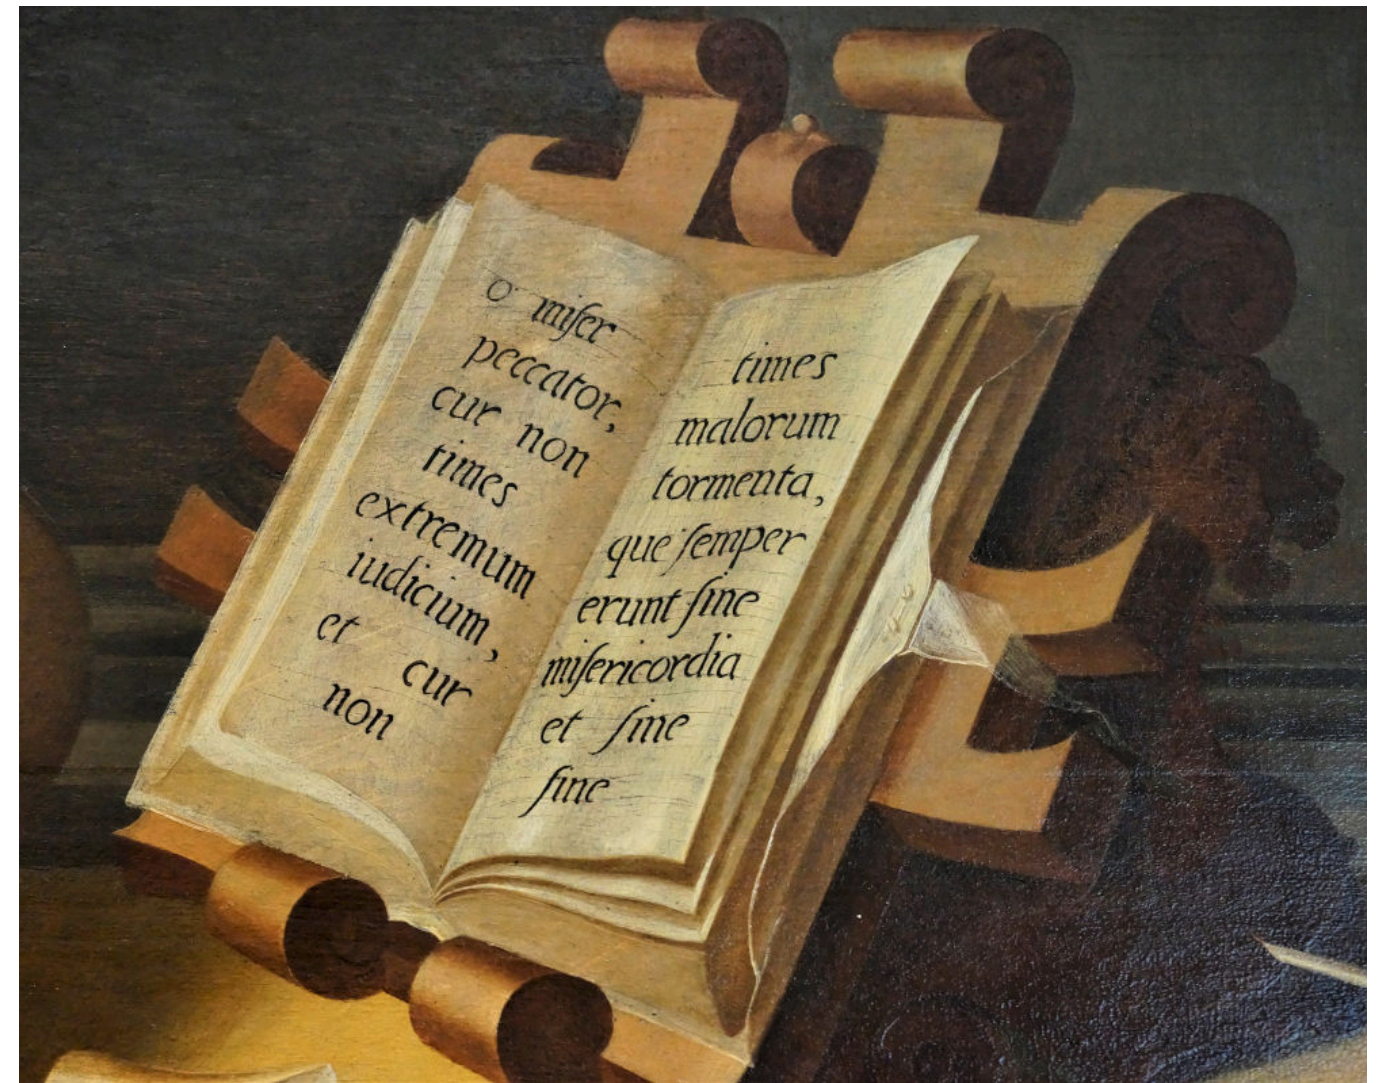 o miser
peccator,
cur non
times
extremum
iudicium,
et cur
non
times
malorum
tormenta,
que semper
erunt sine
misericordia
et sine
fine